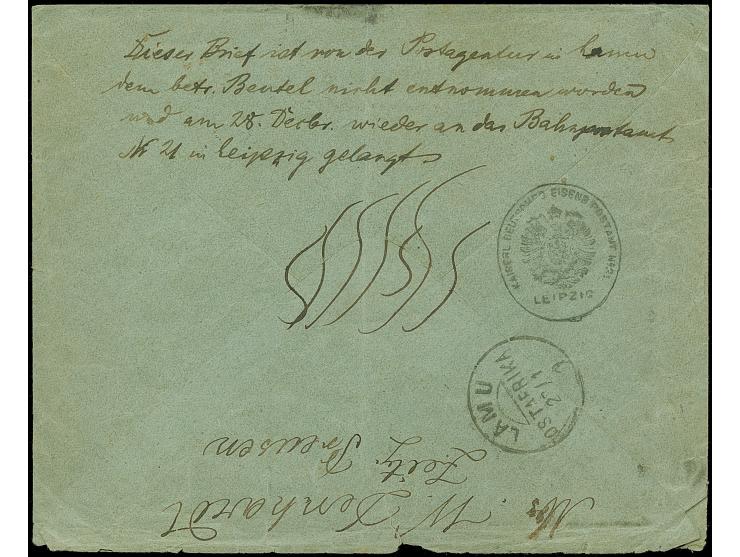 Dieser Brief ist von der Postagentur in Lamu
dem betr. Beutel nicht entnommen worden
und am 28. Decbr. wieder an das Bahnpostamt
Nr 21 in Leipzig gelangt
KAISERL. DEUTSCHES EISENB. POSTAMT No 21
LEIPZIG
LAMU
OSTAFRIKA
W. Denhardt
Zeitz Preussen